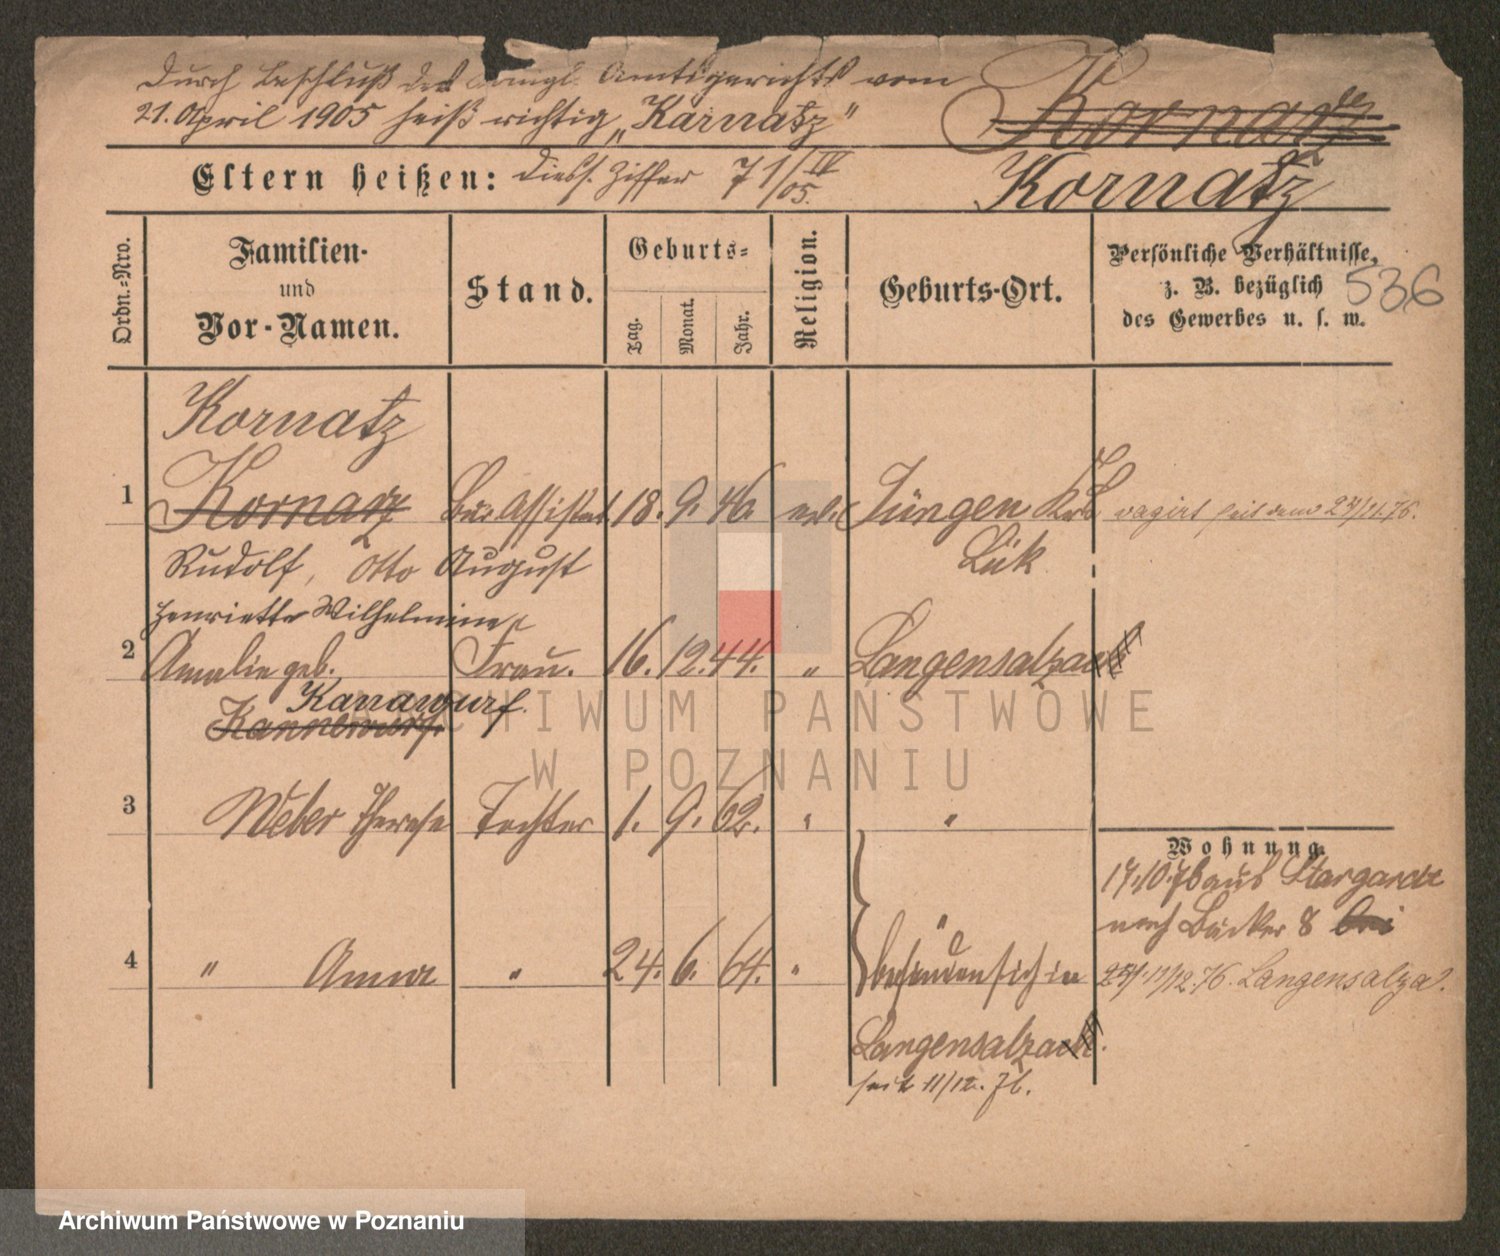 Durch Beschluß des Königl. Amtsgerichts vom
21. April 1905 heiß richtig „Karnatz"
Kornatz
Eltern heißen: Diess. Ziffer 71/IV 05.
Kornatz
Ordn.-Nro.
Familien- und Vor-Namen.
Stand.
Geburts-
Tag. Monat. Jahr.
Religion.
Geburts-Ort.
Persönliche Verhältnisse,
z. B. bezüglich
des Gewerbes u. s. w.
536
Kornatz
1 Kornatz 18. 9. 46. Jüngen
Rudolf, Otto August
Henriette Wilhelmine
2 Amalie geb. Frau. 16. 12. 44. " Langensalza
Kanawurf
Kannewurf.
3 Weber Therese Tochter 1. 9. 62. " "
Wohnung.
17.10.76 aus Stargardt
nach Bäcker 8 bei
4 " Anna " 24. 6. 64. " befinden sich in
11/12.76. Langensalza.
Langensalza
seit 11/12. 76.
Archiwum Państwowe
w Poznaniu
Archiwum Państwowe w Poznaniu